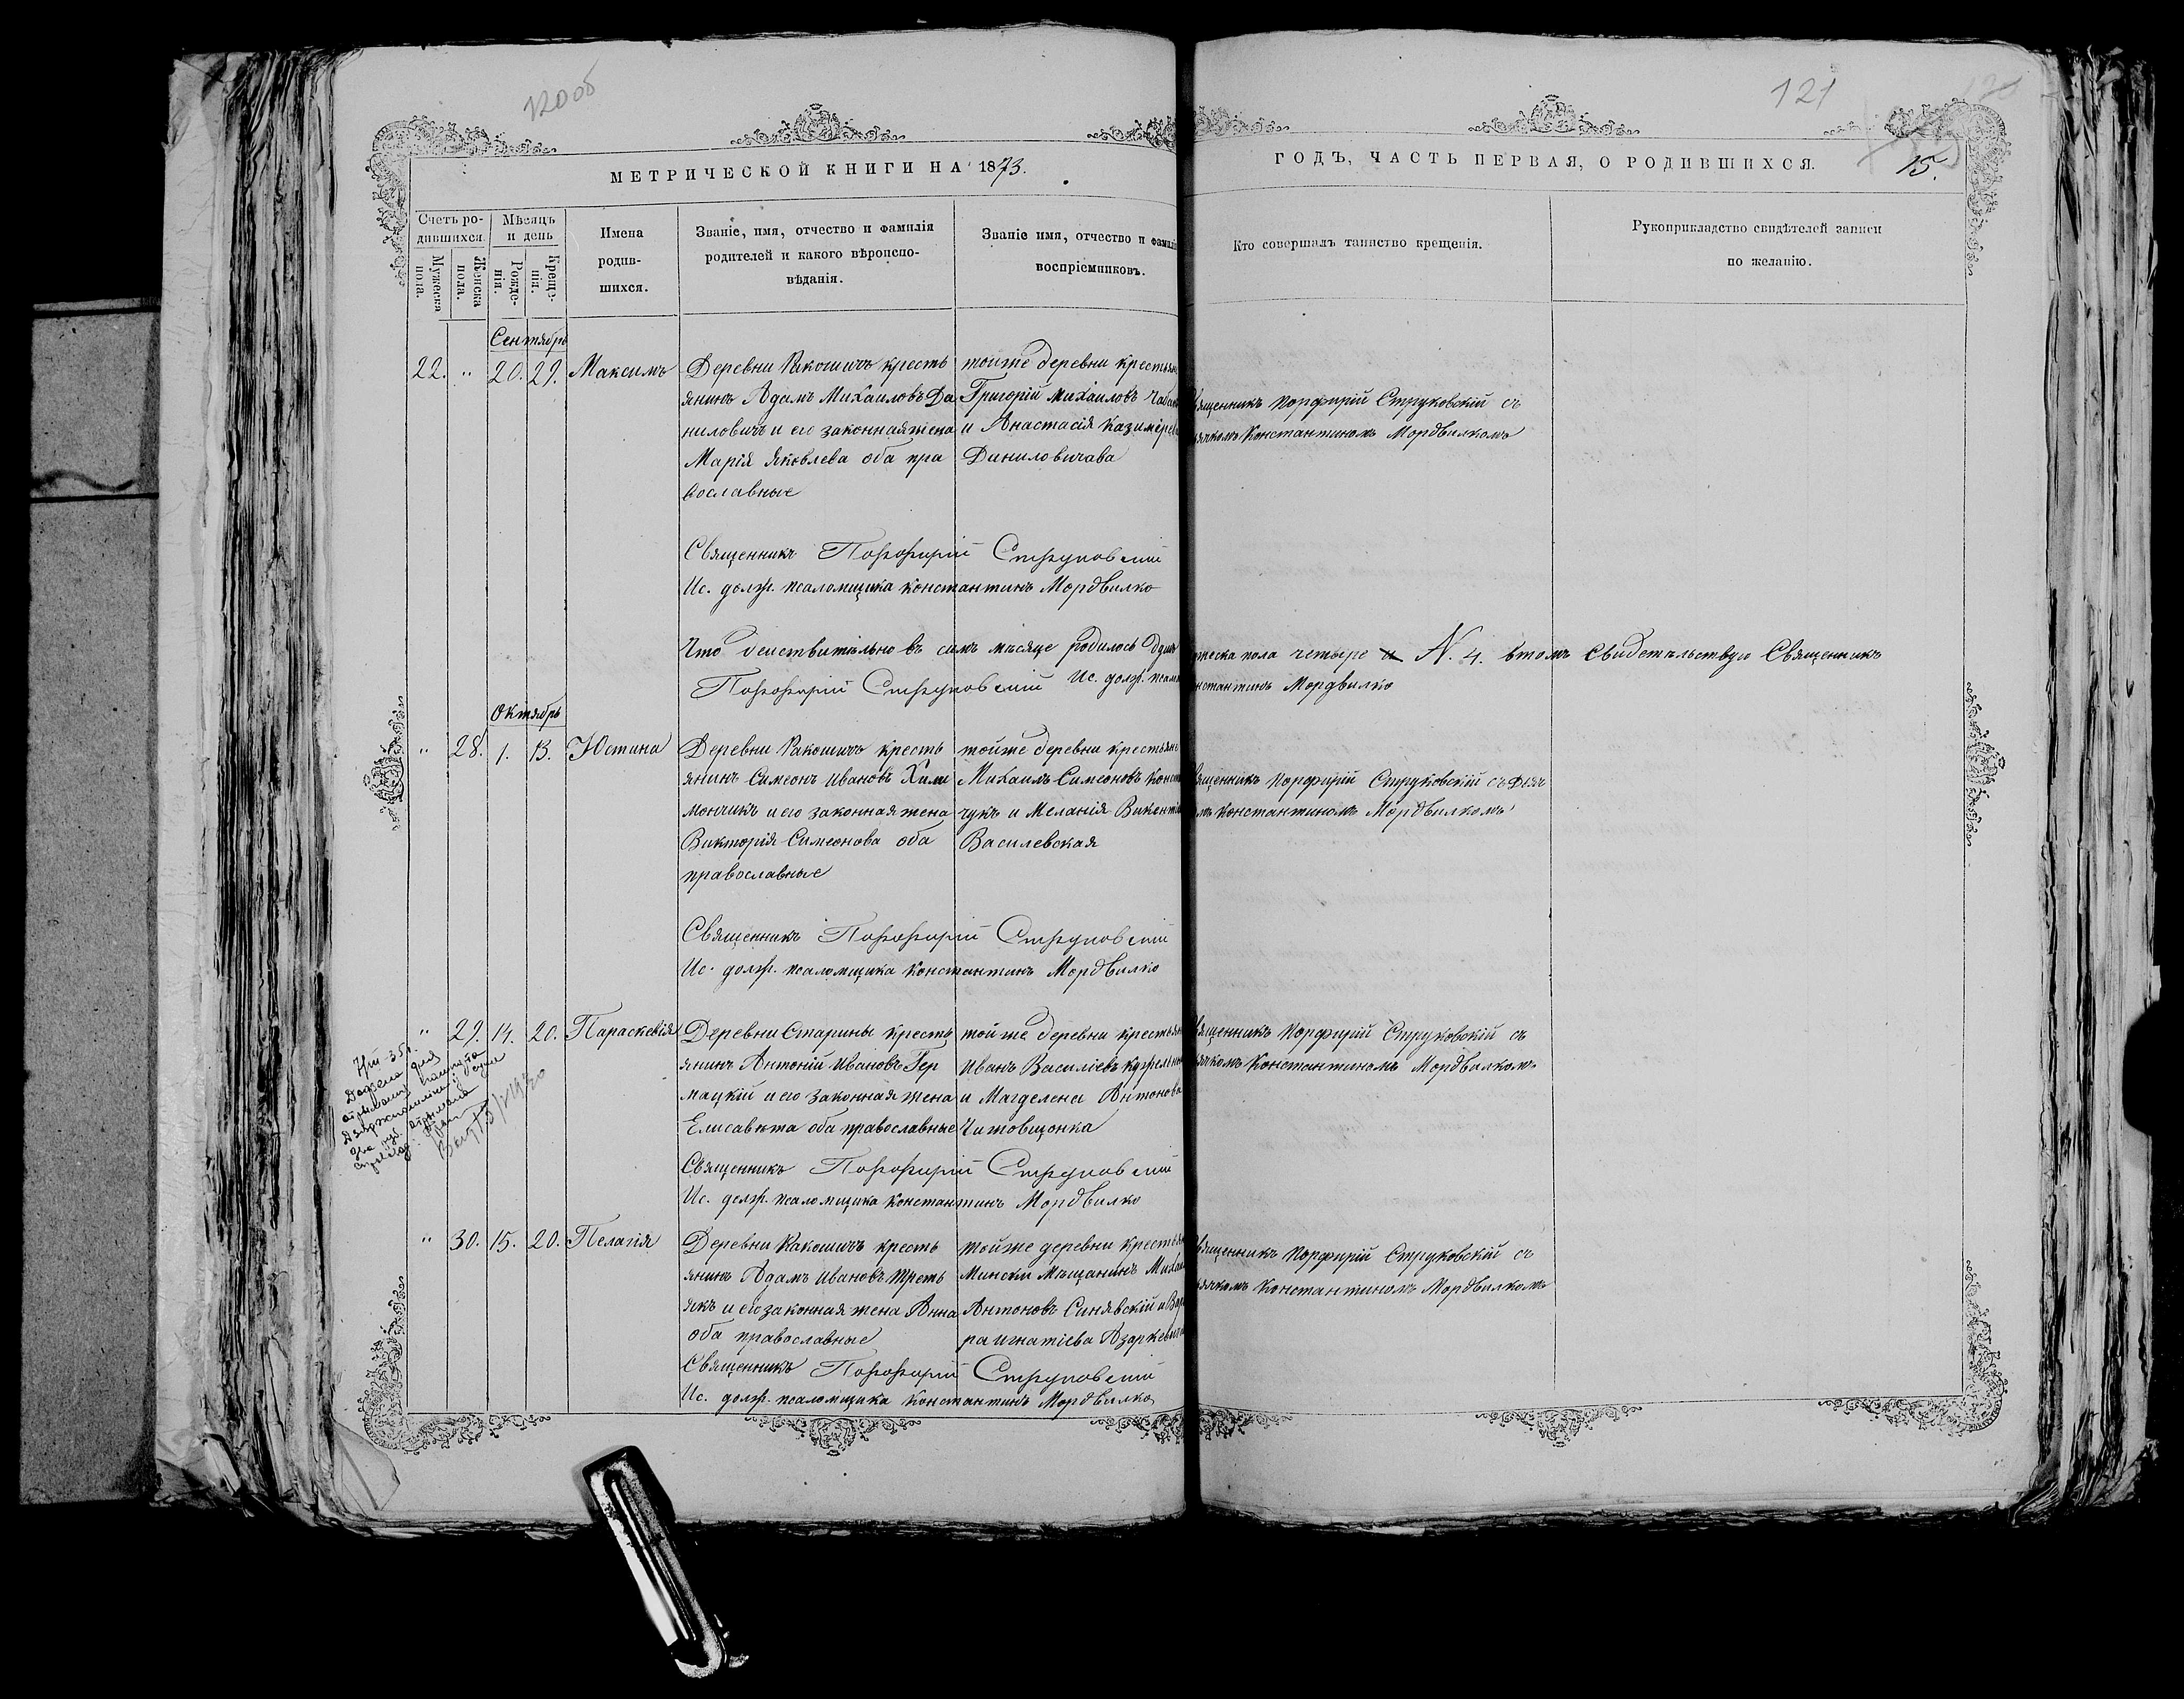 120об
121
МЕТРИЧЕСКОЙ КНИГИ НА 1873.
ГОДЪ, ЧАСТЬ ПЕРВАЯ, О РОДИВШИХСЯ.
15.
Счетъ ро-
дившихся.
Мужеска
пола.
Женска
пола.
Мѣсяцъ
и день
Рожде-
нія.
Креще-
нія.
Имена
родив-
шихся.
Званіе, имя, отчество и фамилія
родителей и какого вѣроиспо-
вѣданія.
Званіе имя, отчество и фамилія
воспріемниковъ.
Кто совершалъ таинство крещенія.
Рукоприкладство свидѣтелей записи
по желанію.
Сентябрь
22. " 20. 29. Максимъ
Деревни Ракошичъ кресть
янинъ Адамъ Михаиловъ Да
ниловичъ и его законная жена
Марія Яковлева оба пра
вославные
тойже деревни крестьян
Григорій Михаиловъ
и Анастасія Казимірова
Даниловичава
Священникъ Порфирій Струковскій съ
дьячкомъ Константиномъ Мордвилкомъ
Священникъ Порфирій Струковскій
Ис. долж. псаломщика Константинъ Мордвилко
Что деиствительно въ семъ мѣсяце родилось душъ
ческа пола четыре и N. 4. втомъ Свидетельствую Священникъ
Порфирій Струковскій Ис. долж. псалом
Константинъ Мордвилко
Октябрь
" 28. 1. 13. Юстина
Деревни Ракошичъ кресть
янинъ Симеонъ Ивановъ Хили
мончикъ и его законная жена
Викторія Симеонова оба
православные
тойже деревни крестьян
Михаилъ Симеоновъ Конст
чукъ и Меланія Викентіе
Василевская
Священникъ Порфирій Струковскій съ Дьяч
мъ Константиномъ Мордвилкомъ
Священникъ Порфирій Струковскій
Ис. долж. псаломщика Константинъ Мордвилко
" 29. 14. 20. Параскевія
Деревни Старины кресть
янинъ Антоній Ивановъ Гер
мацкій и его законная жена
Елисавета оба православные
тойже деревни крестьян
Иванъ Василіевъ
и Магделена Антонова
Читовщонка
Священникъ Порфирій Струковскій съ
дьячкомъ Константиномъ Мордвилкомъ
Священникъ Порфирій Струковскій
Ис. долж. псаломщика Константинъ Мордвилко
" 30. 15. 20. Пелагія
Деревни Ракошичъ кресть
янинъ Адамъ Ивановъ Треть
якъ и его законная жена Анна
оба православные
тойже деревни крестьян
Мински Мѣщанинъ Миха
Антоновъ Синявскій и Вар
ра Игнатіева Азаркевич
Священникъ Порфирій Струковскій съ
дьячкомъ Константиномъ Мордвилкомъ
Священникъ Порфирій Струковскій
Ис. долж. псаломщика Константинъ Мордвилко